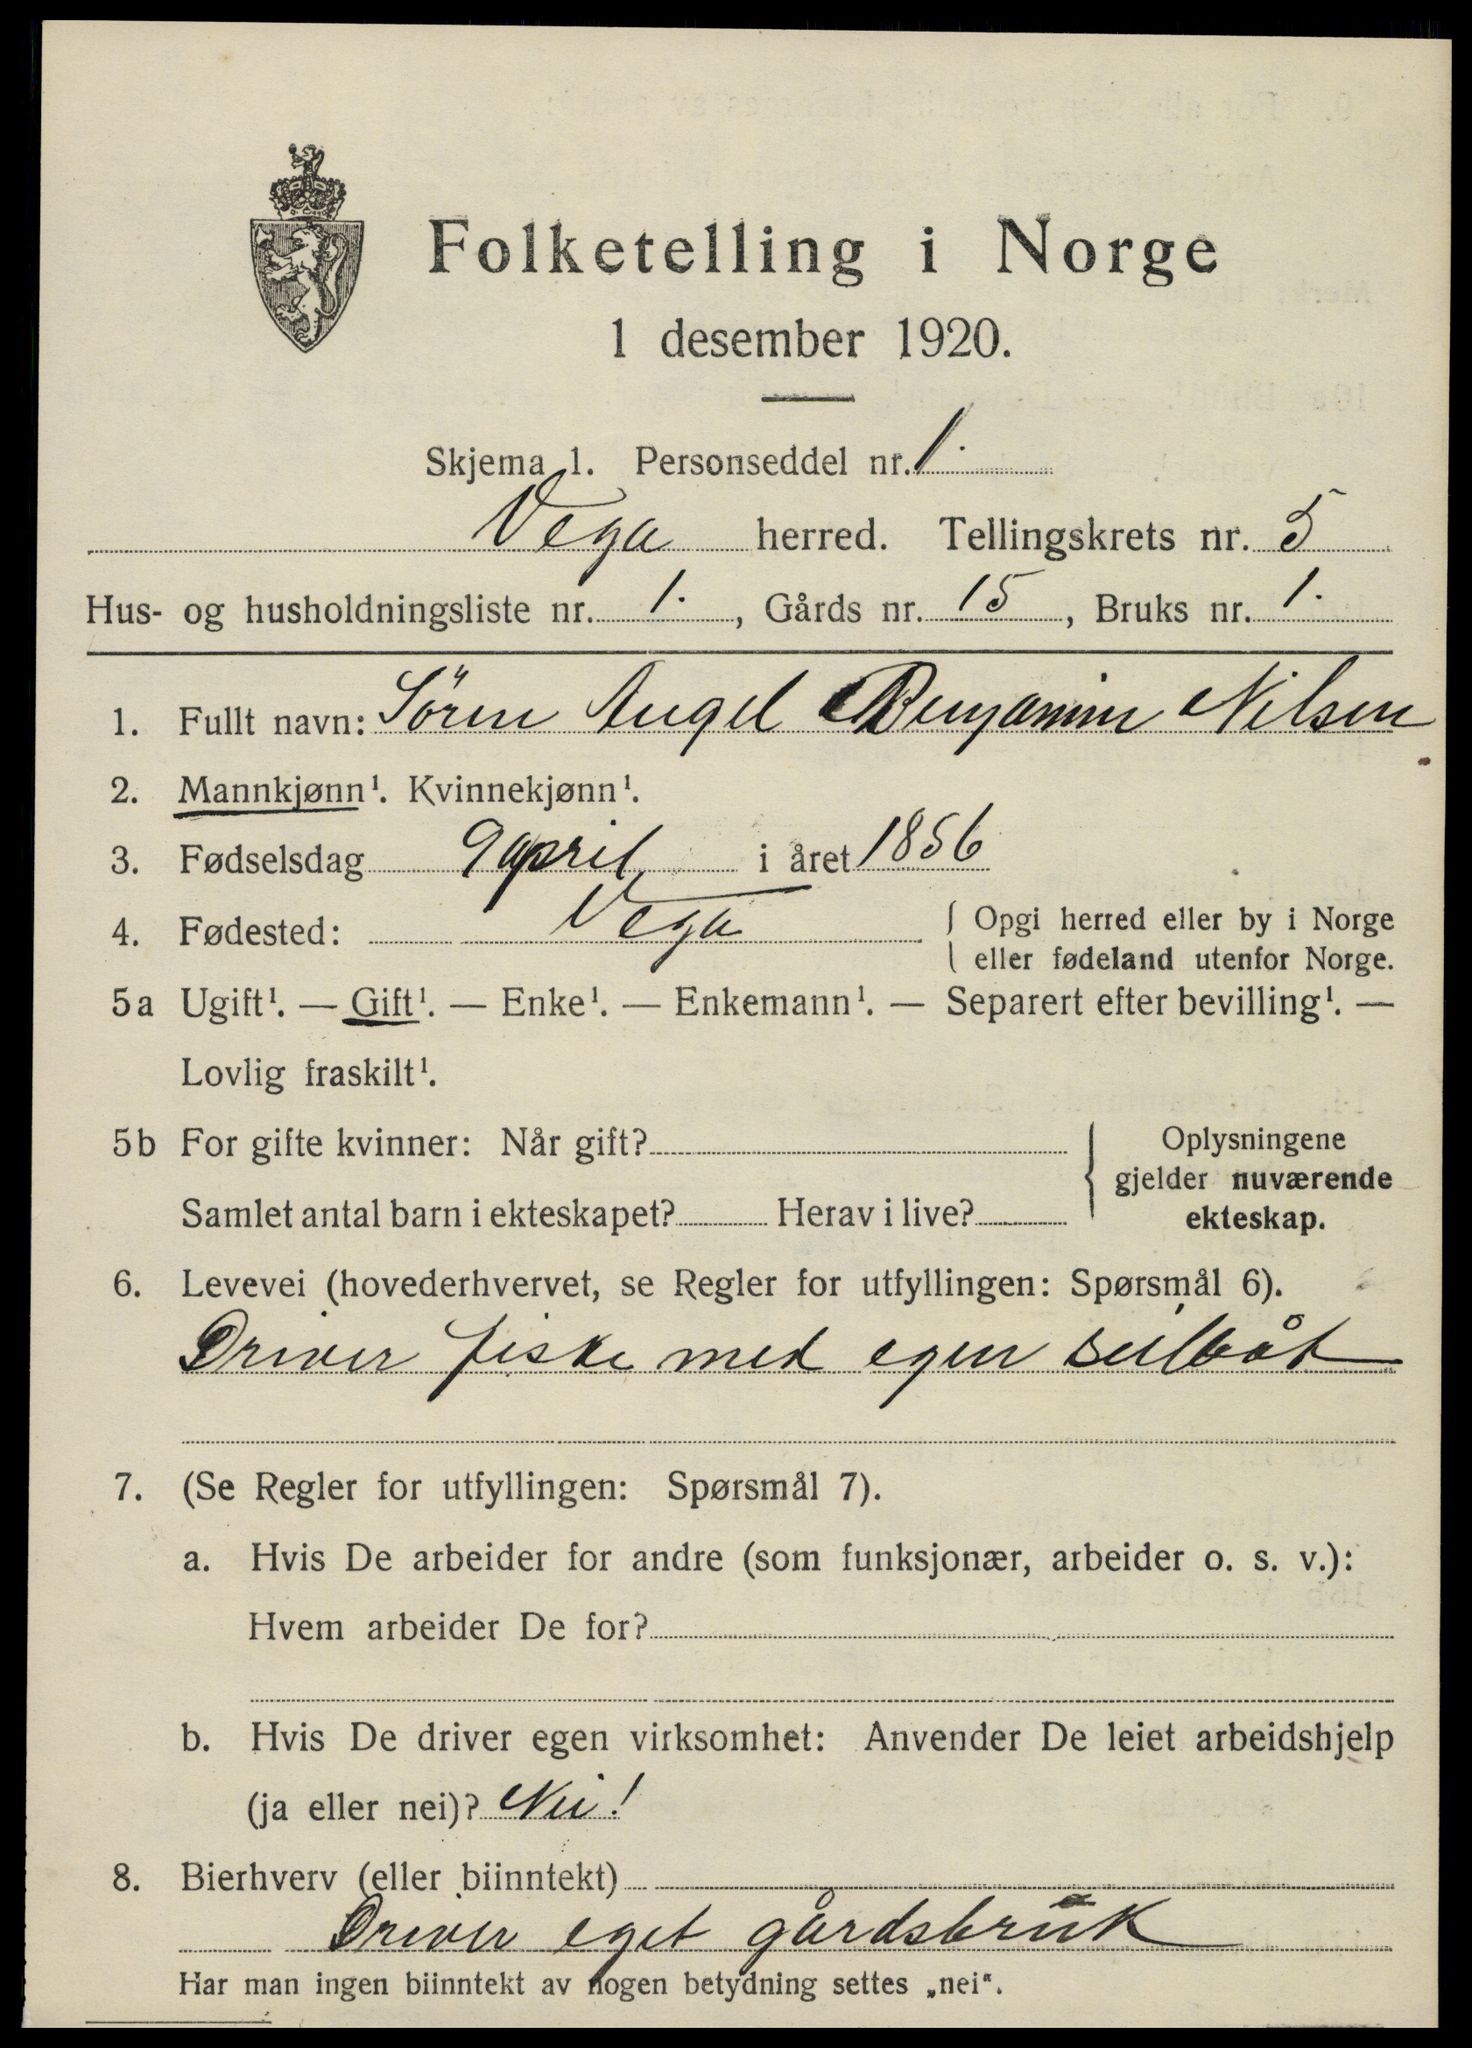 Folketelling i Norge
1 desember 1920.
Skjema 1. Personseddel nr. 1.
Vega herred. Tellingskrets nr. 5
Hus- og husholdningsliste nr. 1. , Gårds nr. 15 , Bruks nr. 1.
1. Fullt navn: Sören Angel Benjamin Nilsen
2. Mannkjønn¹. Kvinnekjønn¹.
3. Fødselsdag 9 april i året 1856
4. Fødested: Vega { Opgi herred eller by i Norge
eller fødeland utenfor Norge.
5a Ugift¹. — Gift¹. — Enke¹. — Enkemann¹. — Separert efter bevilling¹. —
Lovlig fraskilt¹.
5b For gifte kvinner: Når gift? { Oplysningene
gjelder nuværende
Samlet antal barn i ekteskapet? Herav i live? ekteskap.
6. Levevei (hovederhvervet, se Regler for utfyllingen: Spørsmål 6).
Driver fiske med egen seilbåt
7. (Se Regler for utfyllingen: Spørsmål 7).
a. Hvis De arbeider for andre (som funksjonær, arbeider o. s. v.):
Hvem arbeider De for?
b. Hvis De driver egen virksomhet: Anvender De leiet arbeidshjelp
(ja eller nei)? Nei!
8. Bierhverv (eller biinntekt)
Driver eget gårdsbruk
Har man ingen biinntekt av nogen betydning settes „nei".